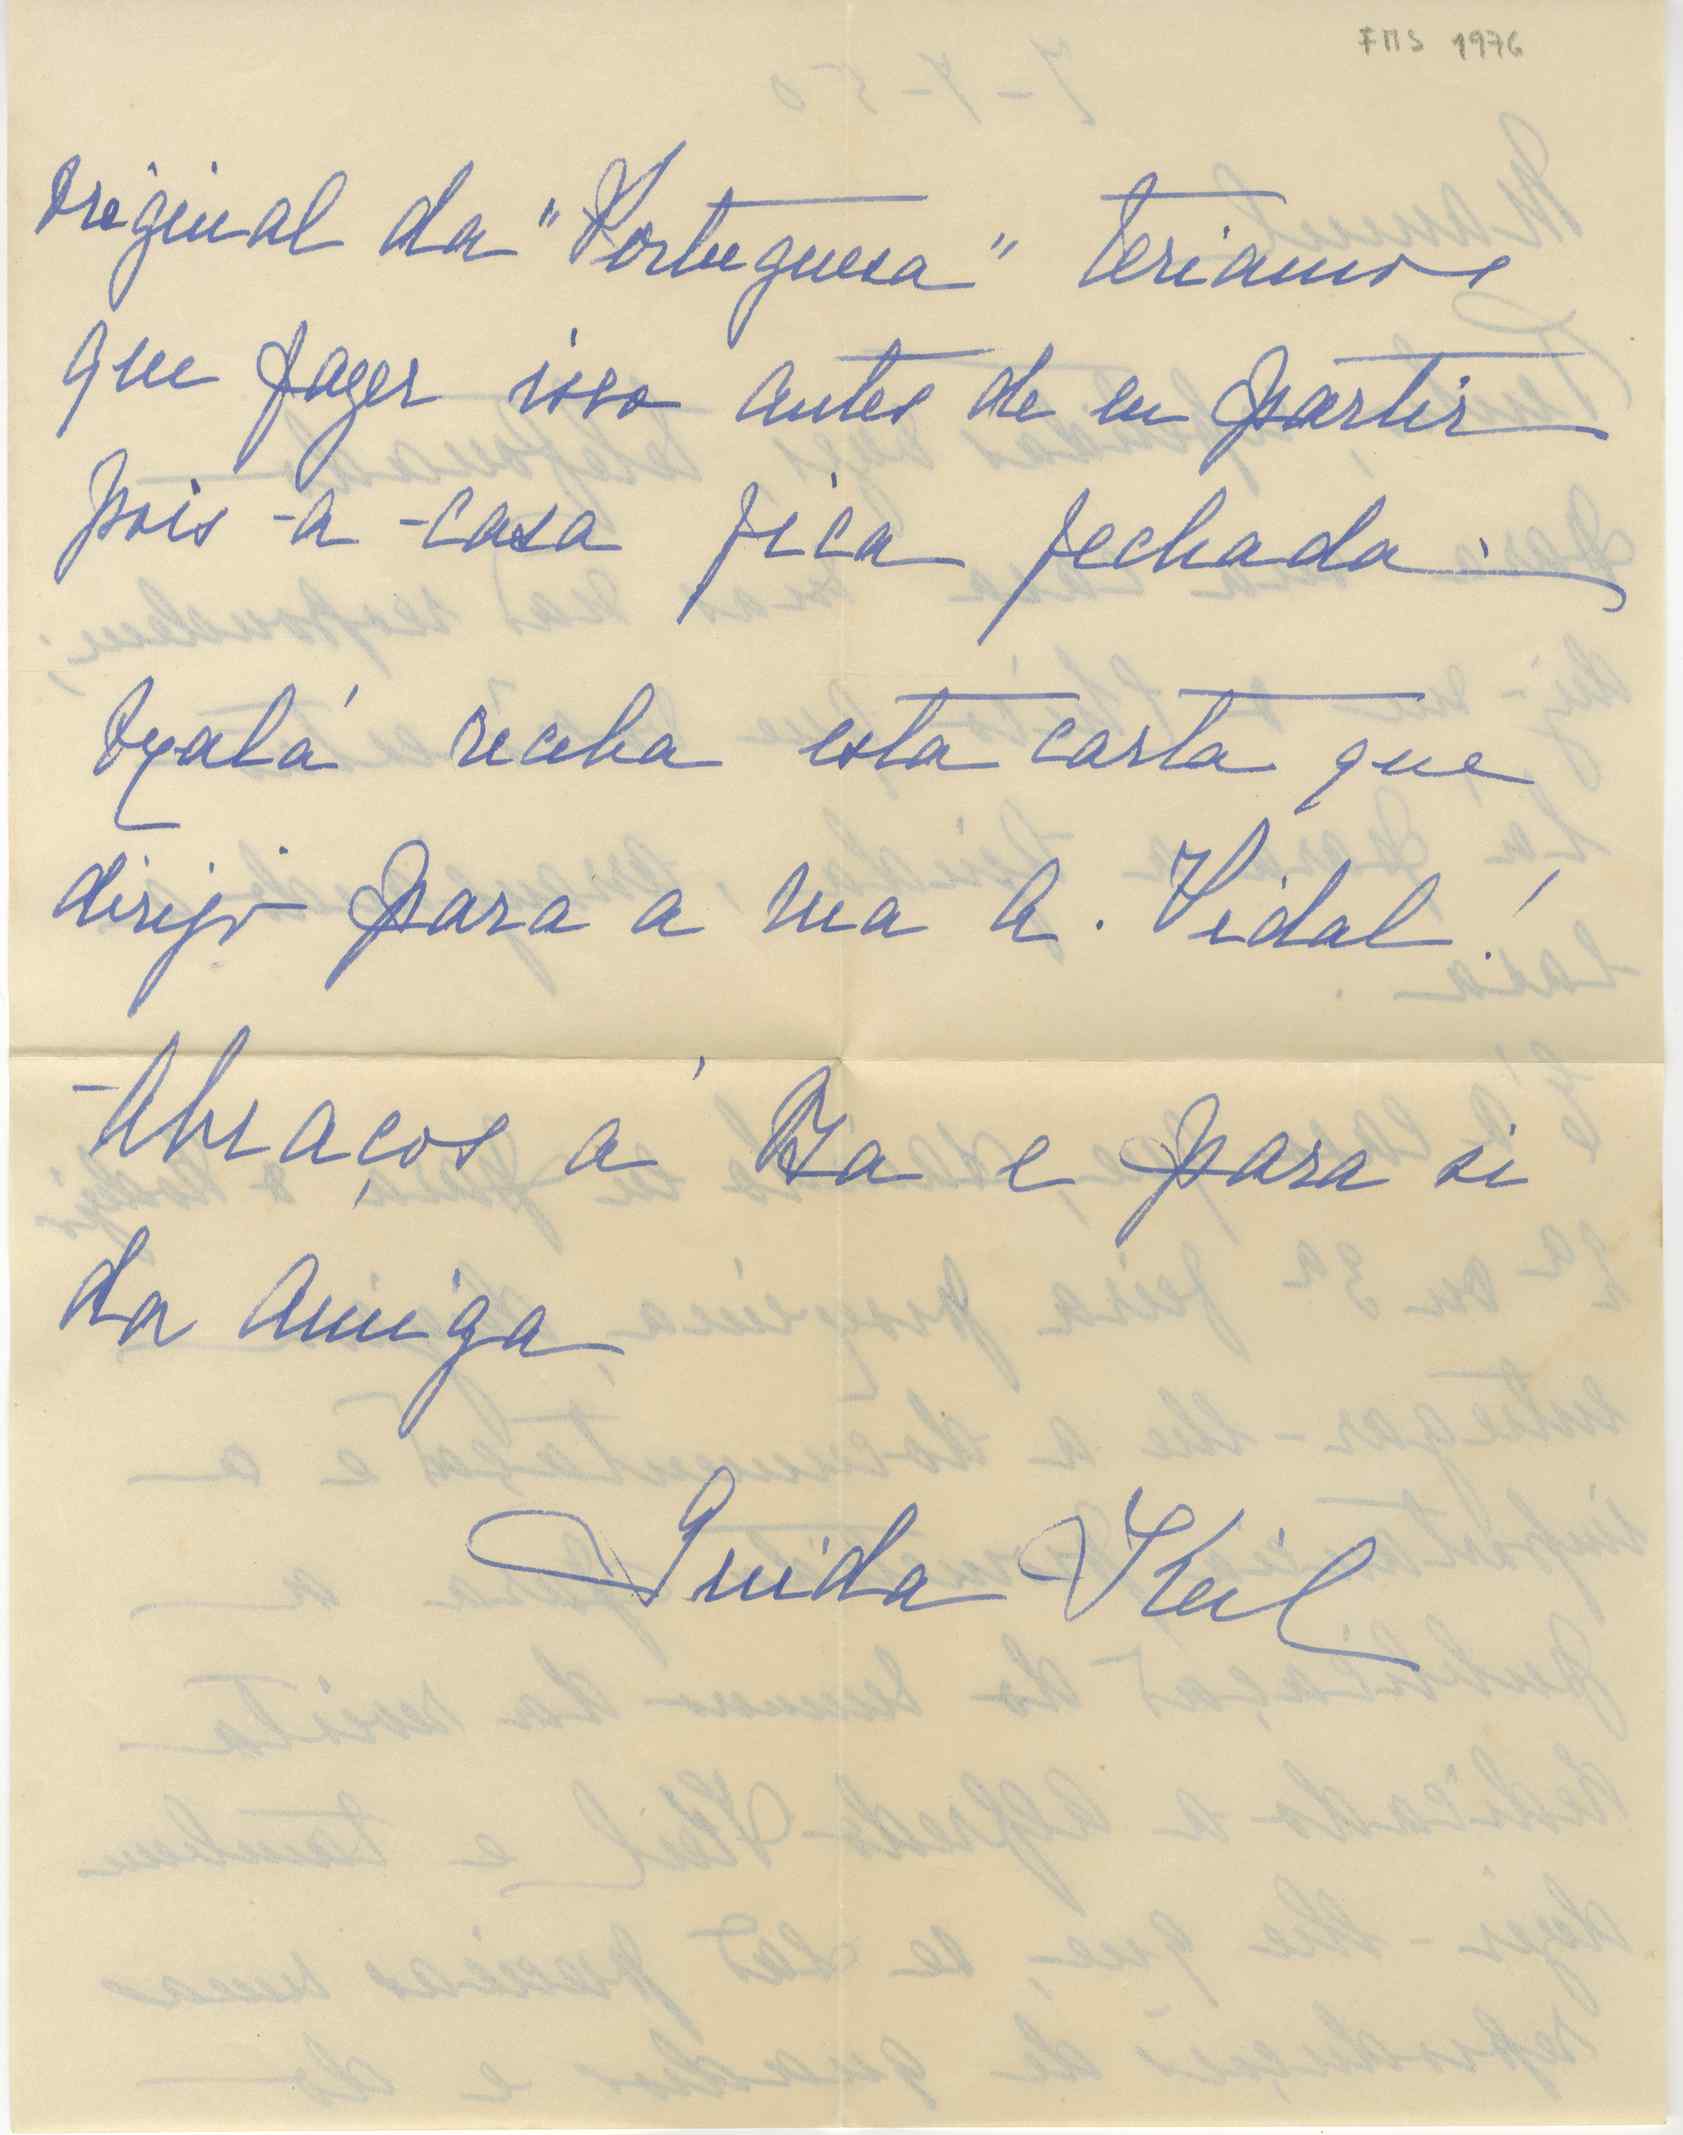 FMS 1976
original da "Portuguesa" teriamos
que fazer isso antes de eu partir
pois a casa fica fechada.
Oxalá receba esta carta que
dirijo para a rua A. Vidal!
Abraços á Za e para si
da amiga
Guida Keil